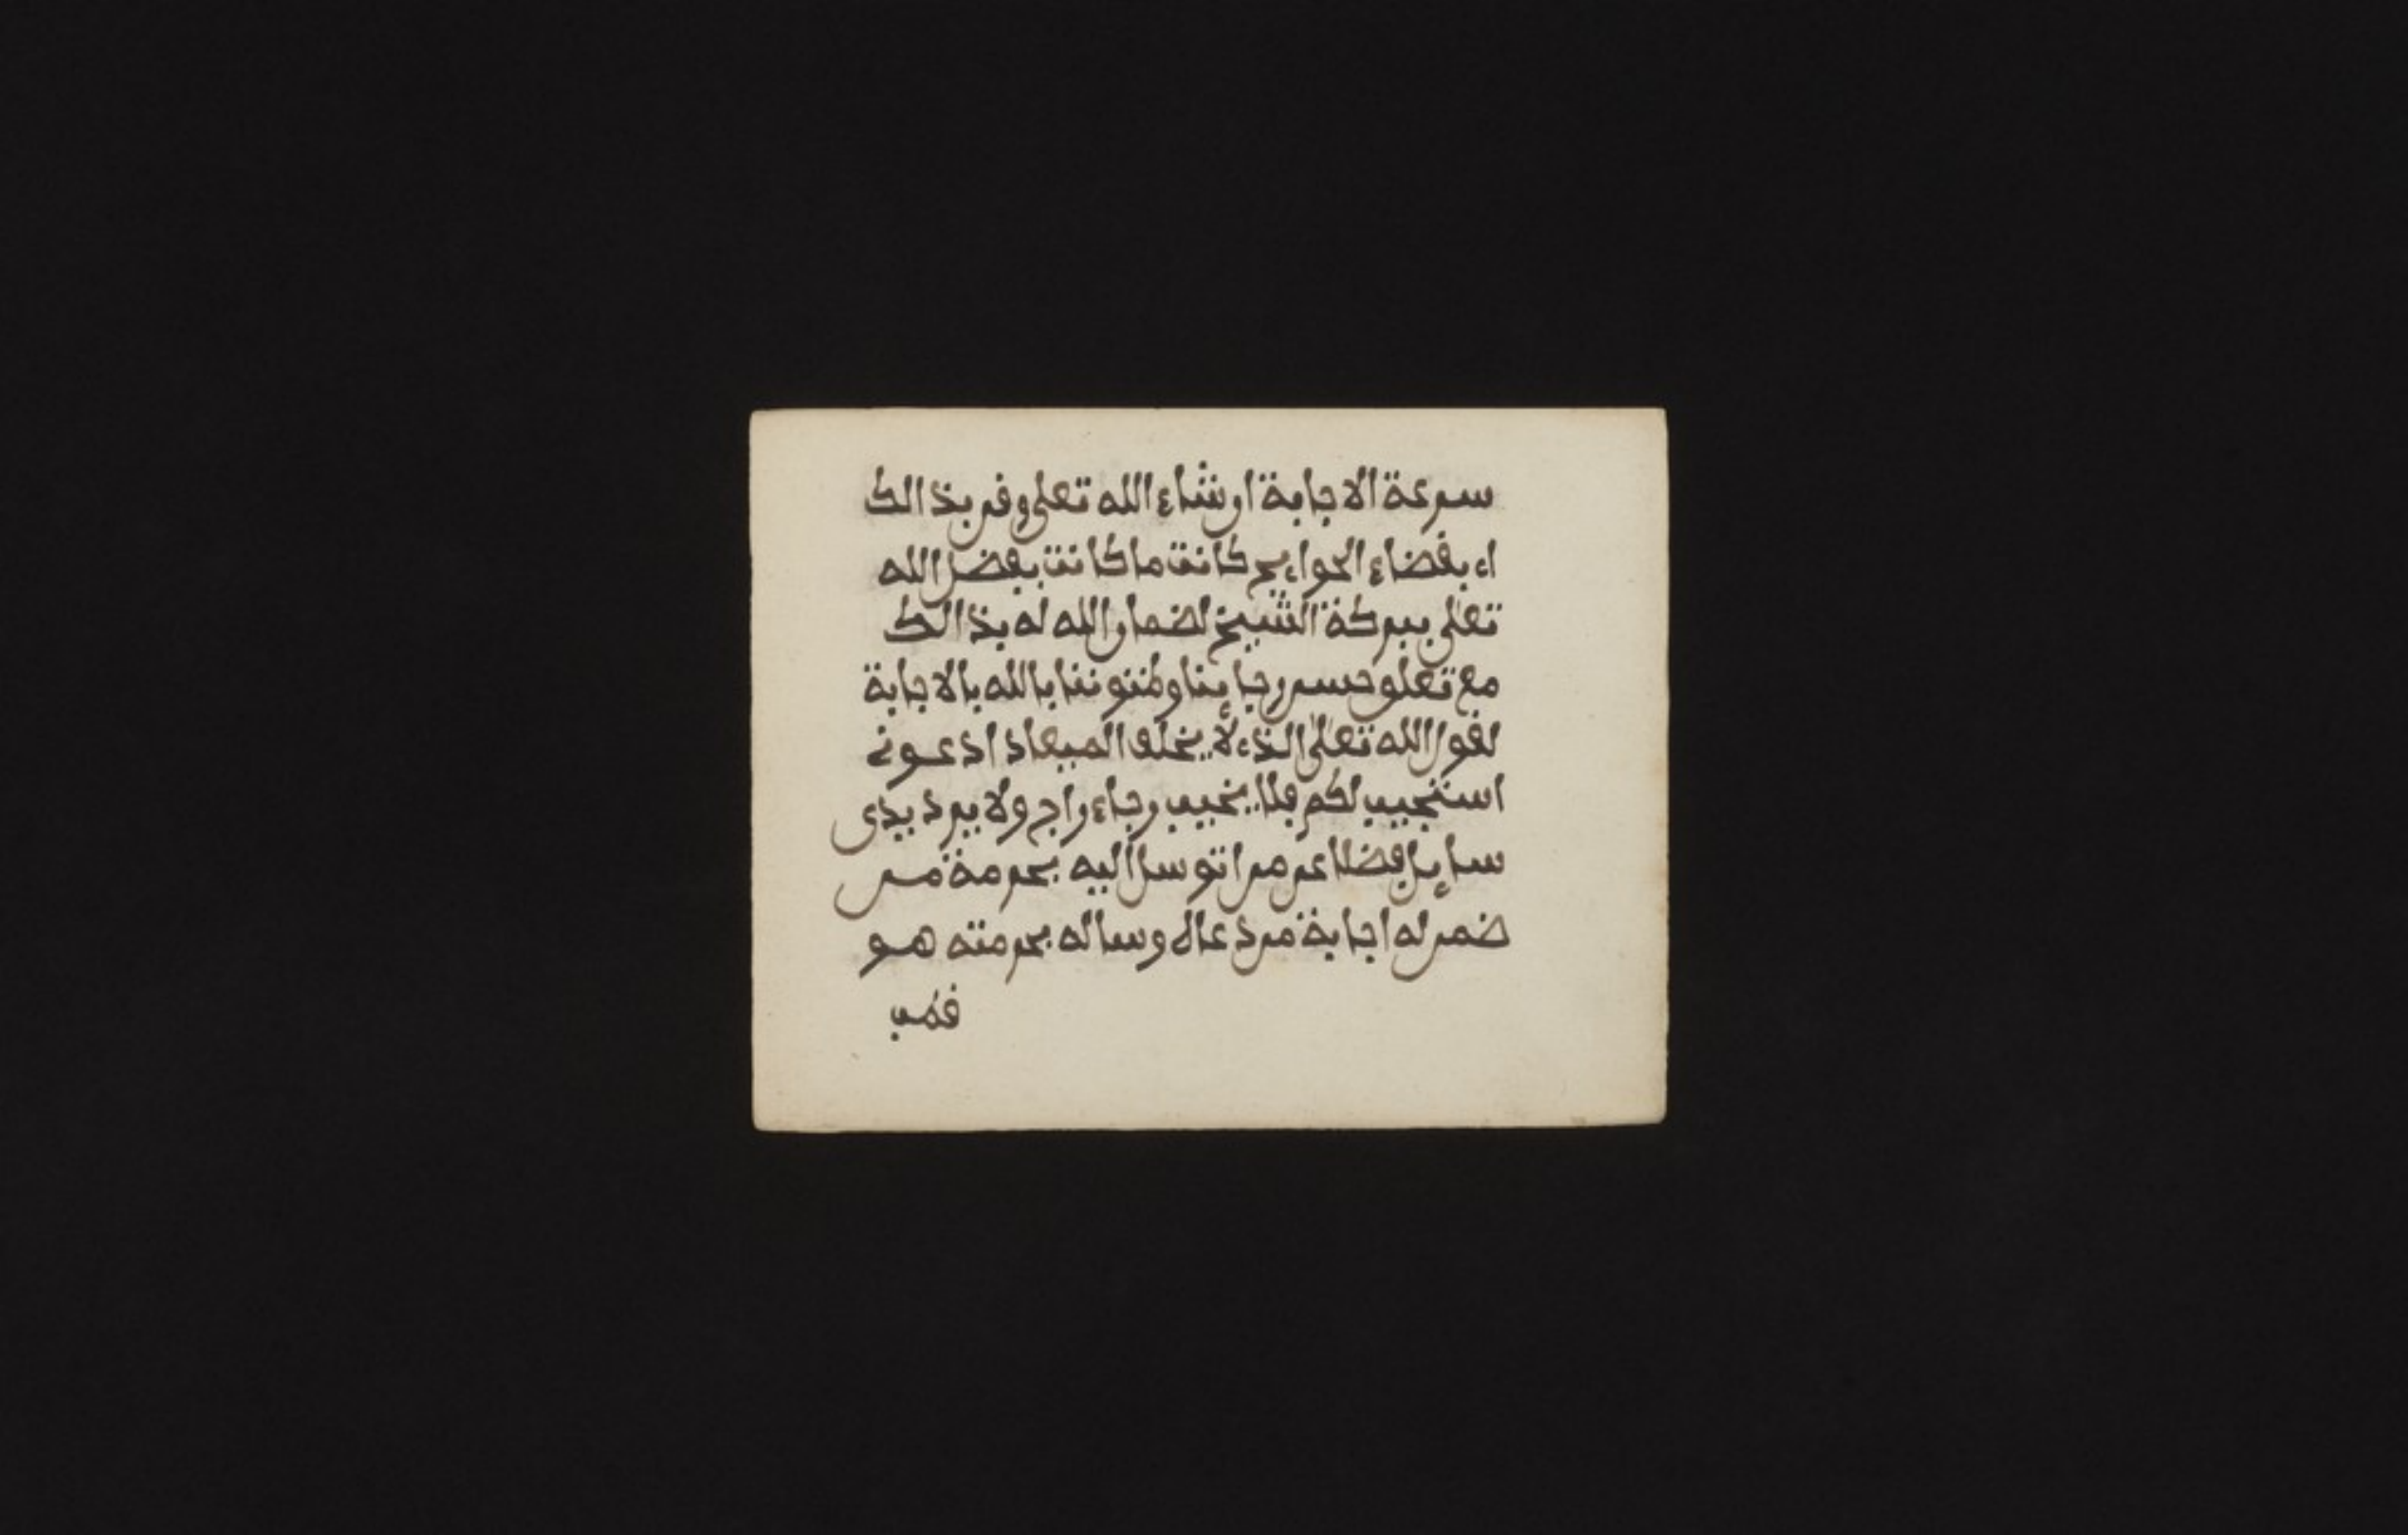 سرعة الاجابة ان شاء الله تعلى وفمن بذالك
اء بقضاء الحواءيج كانت ما كانت بفضل الله
تعلى ببركة الشيخ لضمان الله له بذالك
مع تعلو حسن رجاينا وظنوننا بالله بالاجابة
لقول الله تعلى الذء لا يخلف الميعاد ادعونى
استجيب لكم فلا يخيب رجاء راج ولا يرد يدى
سايل فضلا عن من اتوسل اليه بحرمة من
ضمن له اجابة من دعاه وساله بحرمته هو